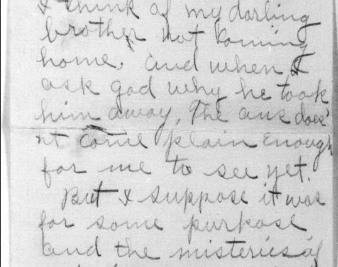 I think of my darling
brother not coming
home. and when I
ask god why he took
him away. The ans does'
nt come plain enough
for me to see yet.
But I suppose it was
for some purpose
and the misteries of